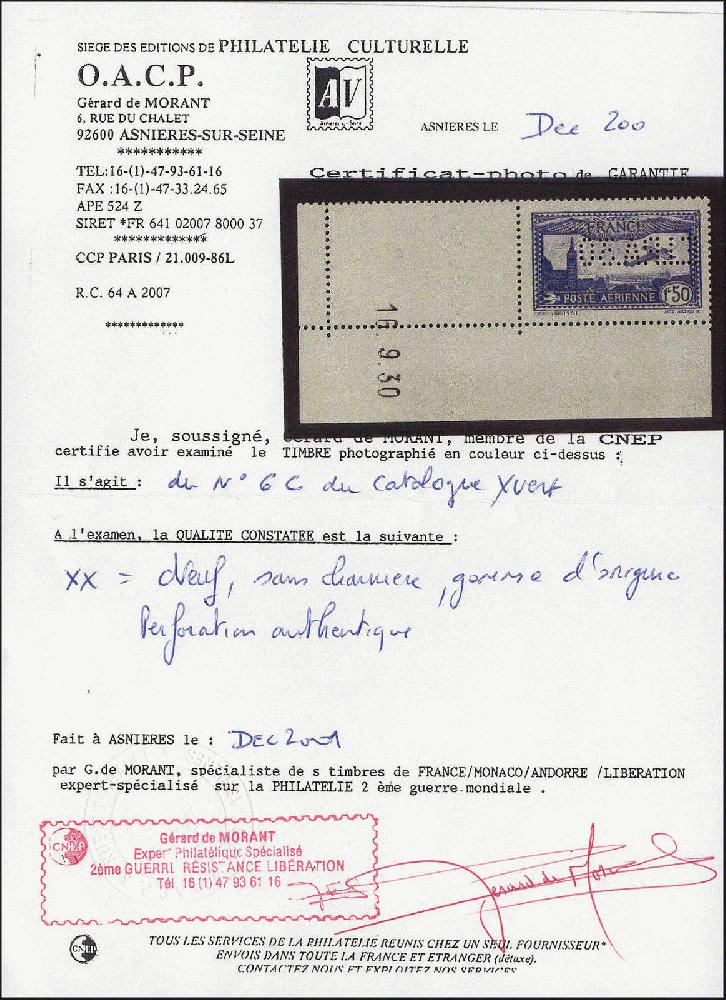 SIEGE DES EDITIONS DE PHILATELIE CULTURELLE
O.A.C.P.
Gérard de MORANT
6, RUE DU CHALET
92600 ASNIERES-SUR-SEINE
***********
AV
ASNIERES LE Dec 200
TEL:16-(1)-47-93-61-16
FAX :16-(1)-47-33.24.65
APE 524 Z
SIRET *FR 641 02007 8000 37
*************
CCP PARIS / 21.009-86L
R.C. 64 A 2007
************
Certificat-photo de GARANTIE
FRANCE
POSTE AERIENNE 1F50
16.9.30
Je, soussigné, Gérard de MORANT, membre de la CNEP
certifie avoir examiné le TIMBRE photographié en couleur ci-dessus :
Il s'agit : du N° 6 C du Catalogue Yvert
A l'examen, la QUALITE CONSTATEE est la suivante :
XX = Neuf, sans charnière, gomme d'origine
Perforation authentique
Fait à ASNIERES le : DEC 2001
par G.de MORANT, spécialiste de s timbres de FRANCE/MONACO/ANDORRE /LIBERATION
expert-spécialisé sur la PHILATELIE 2 ème guerre mondiale .
CNEP
Gérard de MORANT
Expert Philatélique Spécialisé
2ème GUERRE RÉSISTANCE LIBÉRATION
Tél 16 (1) 47 93 61 16
Gerard de Mor
CNEP
TOUS LES SERVICES DE LA PHILATELIE REUNIS CHEZ UN SEUL FOURNISSEUR*
ENVOIS DANS TOUTE LA FRANCE ET ETRANGER (détaxe).
CONTACTEZ NOUS ET EXPLOITEZ NOS SERVICES